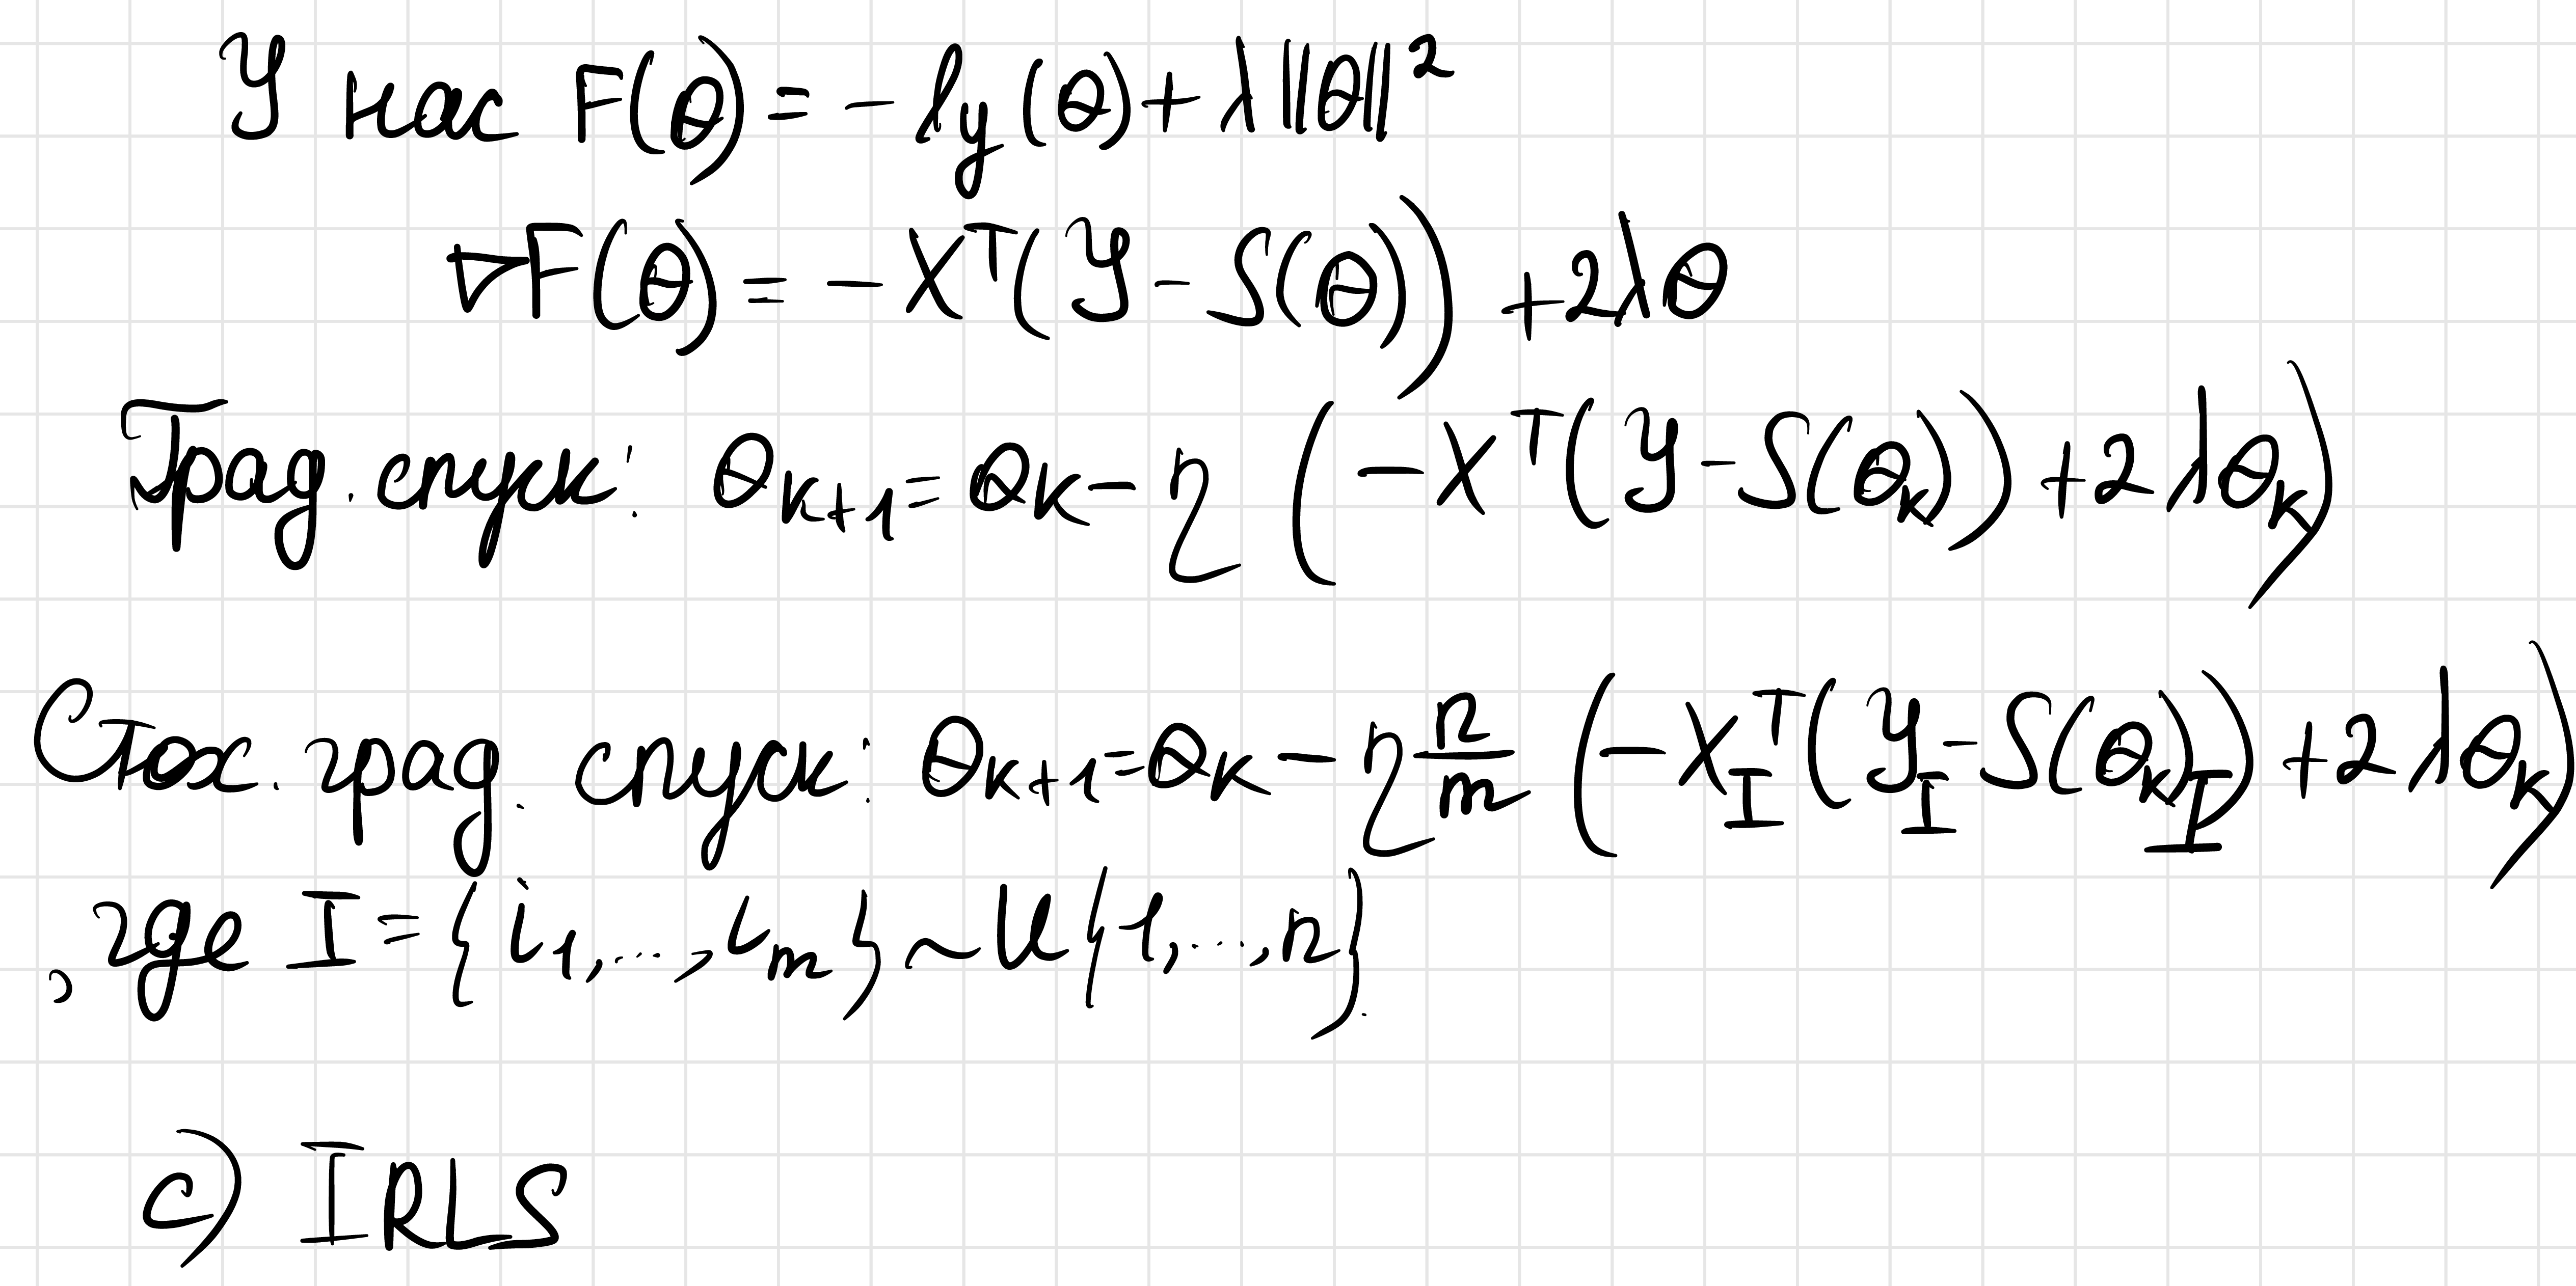 У нас F(θ) = - l_y(θ) + λ||θ||²
∇F(θ) = - X^T(Y - S(θ)) + 2λθ
Град. спуск: θ_{k+1} = θ_k - η (-X^T(Y - S(θ_k)) + 2λθ_k)
Стох. град. спуск: θ_{k+1} = θ_k - η n/m (-X_I^T(Y_I - S(θ_k)_I) + 2λθ_k)
, где I = {i_1, ..., i_m} ~ U{1, ..., n}.
c) IRLS